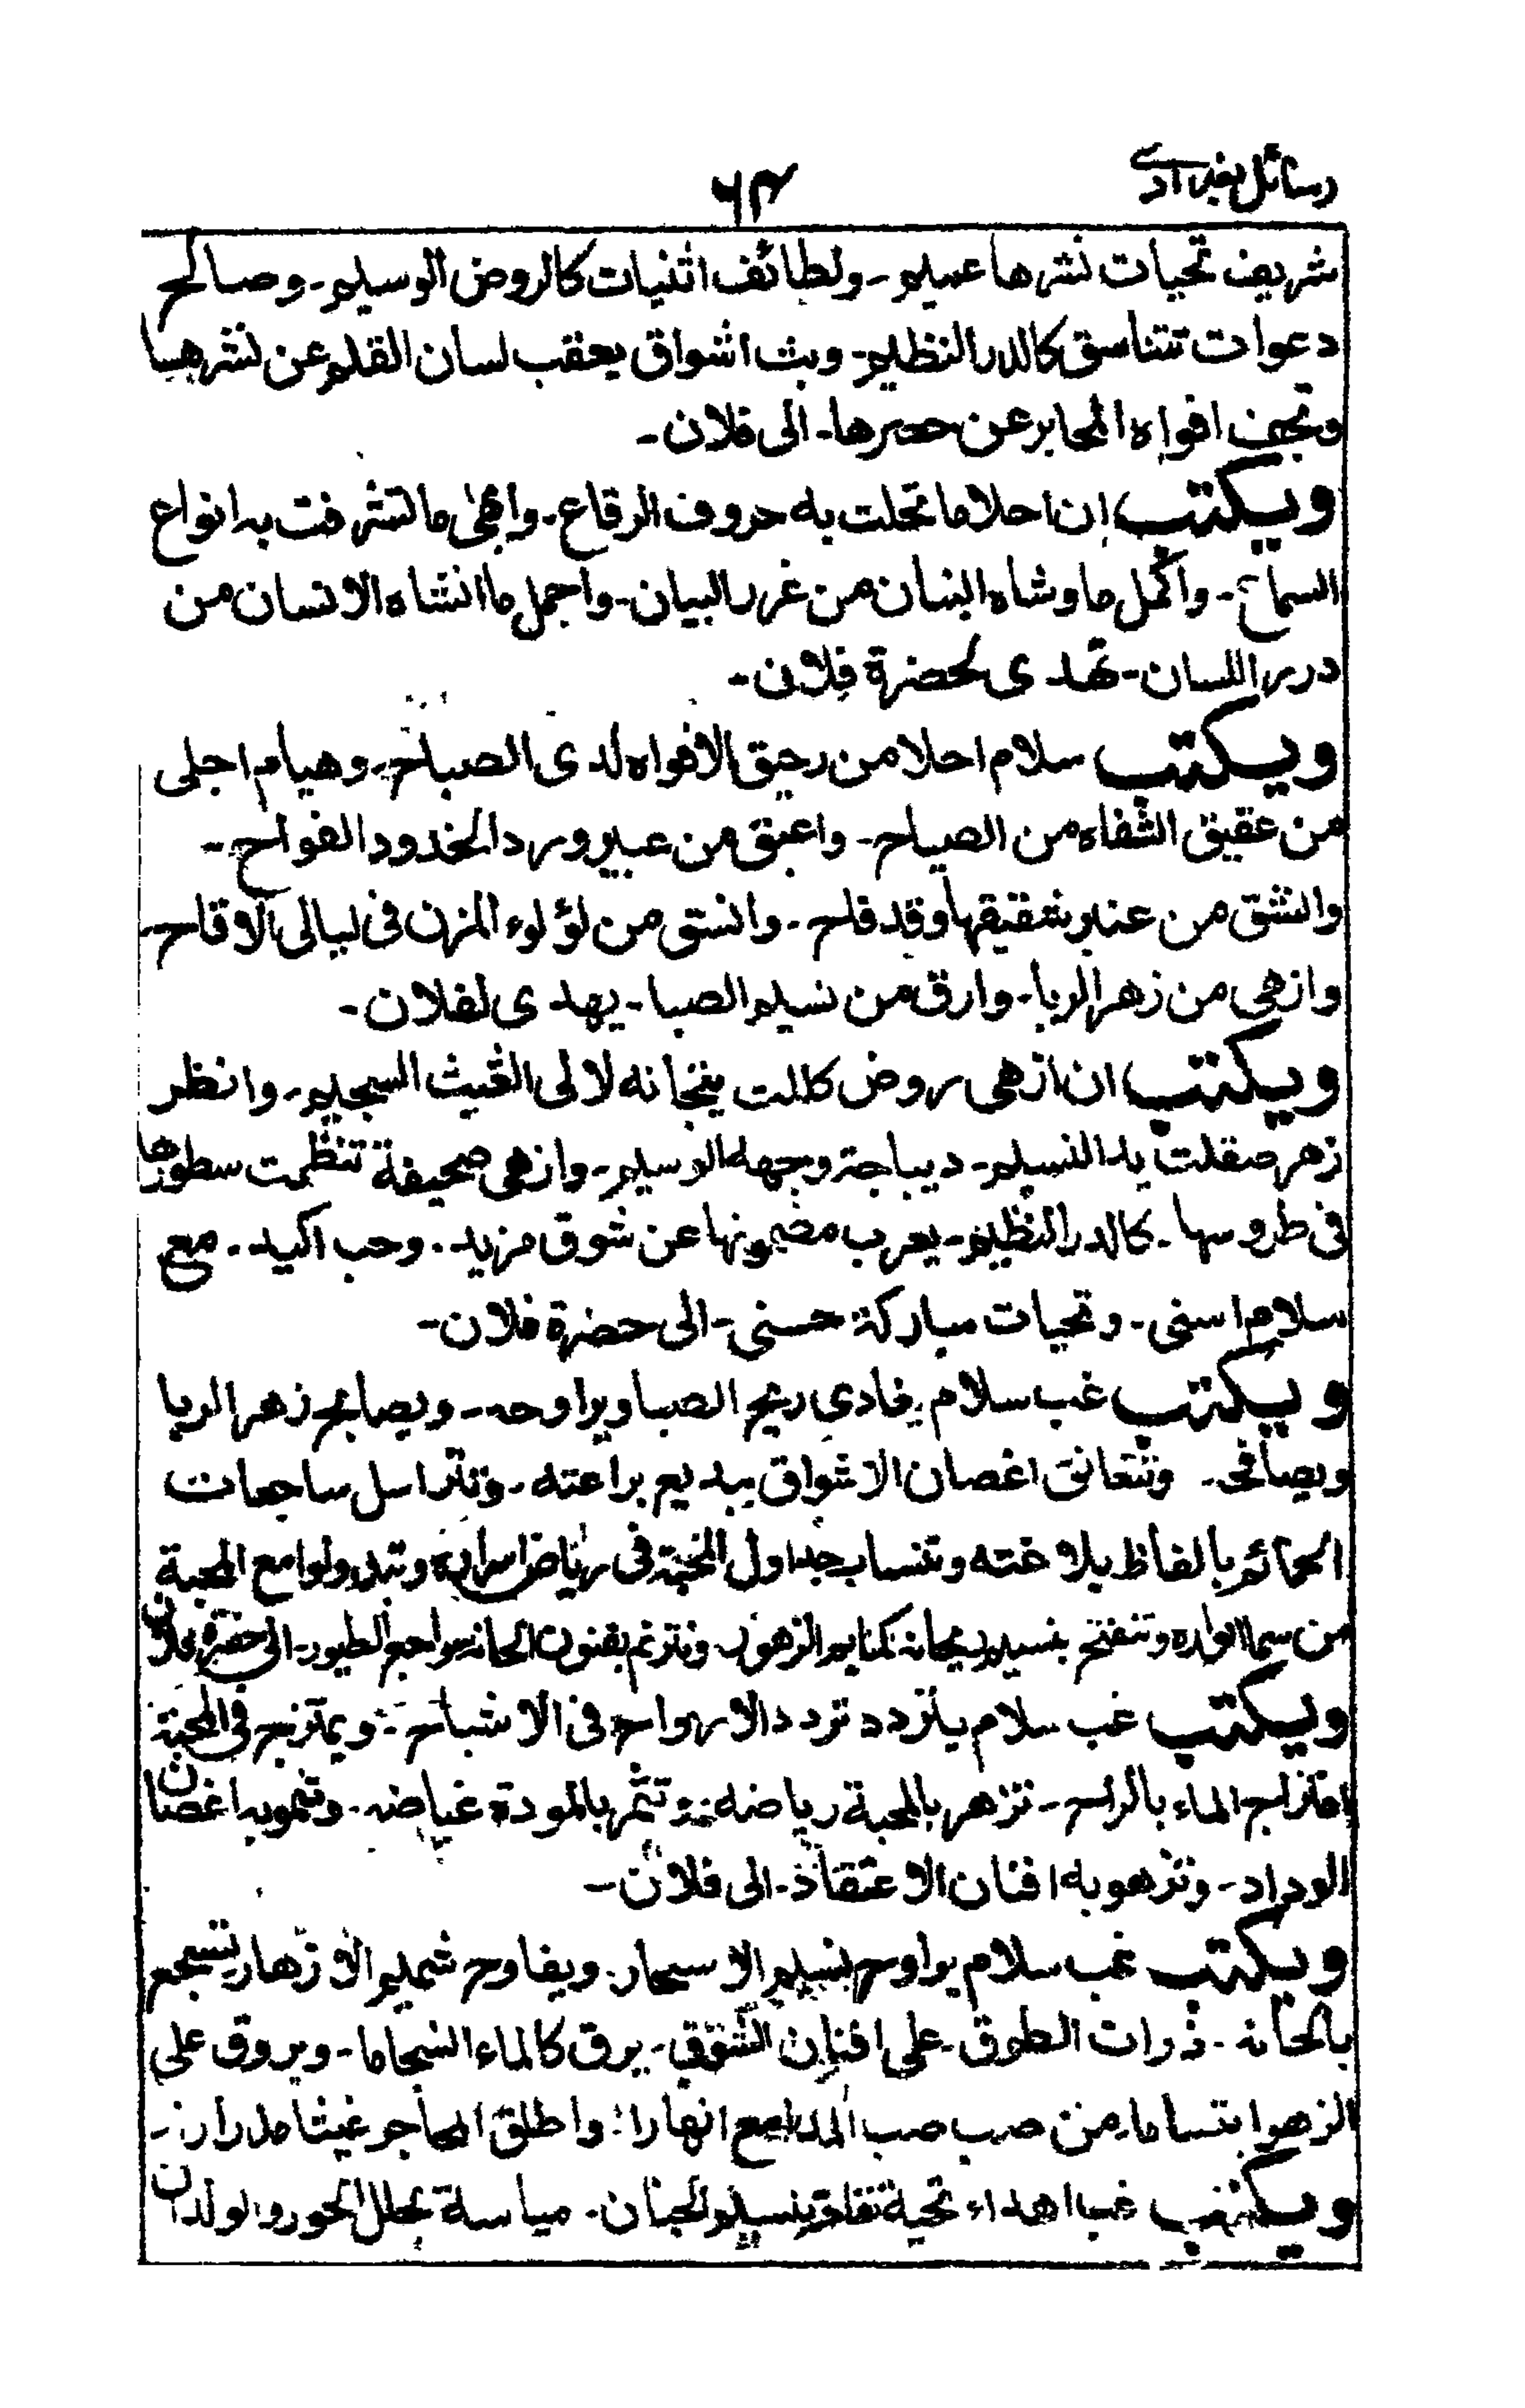 رسائل بغدادي
٦٣
شريف تحيات نشرها عميم - ولطائف اثنيات كالروض الوسيم - وصالح
دعوات تتناسق كالدر النظيم - وبث اشواق يعقب لسان القلم عن نشرها
وتجف افواه المحابر عن حصرها - الى فلان -
ويكتب ان احلا ما تحلت به حروف الرقاع - وابهى ما تشرفت به انواع
السماع - واكمل ما وشاه البنان من غرر البيان - واجمل ما انشاه الانسان من
درر اللسان - تهدى لحضرة فلان -
ويكتب سلام احلا من رحيق الافواه لدى الصباح - وهيام اجلى
من عقيق الشفاه من الصياح - واعبق من عبير ورد الخدود الفواح -
وانشق من عنبر شقيقها وقد فاح - وانسق من لؤلوء المزن فى ليالى الاقاح -
وازهى من زهر الربا - وارق من نسيم الصبا - يهدى لفلان -
ويكتب ان ازهى روض كللت بتيجانه لالى الغيث السجيم - وانظر
زهر صقلت يد النسيم - ديباجة وجهه الوسيم - وازهى صحيفة تنظمت سطورها
فى طروسها - كالدر النظيم - يعرب مضمونها عن شوق مزيد - وحب اكيد - مع
سلام اسنى - وتحيات مباركة حسنى - الى حضرة فلان -
ويكتب غب سلام يغادى ريح الصبا ويراوحه - ويصابح زهر الربا
ويصافحه - وتتعانق اغصان الاشواق ببديع براعته - وتتراسل ساجعات
الحمائم بالفاظ بلاغته وتنساب جداول المحبة فى رياض اسراره وتبدو لوامع المحبة
من سما انواره وتنفتح بنسيم ريحانه كمايم الزهور وتترنم بفنون الحانه سواجع الطيور - الى حضرة فلان
ويكتب غب سلام يتردد تردد الارواح فى الاشباح - ويمتزج فى المحبة
امتزاج الماء بالراح - تزهر بالمحبة رياضه - وتثمر بالمودة غياضه - وتنمو به اغصان
الوداد - وتزهو به افنان الاعتقاد - الى فلان -
ويكتب غب سلام يراوح نسيم الاسحار - ويفاوح شميم الازهار يسجع
بالحانه - ذوات الطوق - على افنان الشوق - يرق كالماء انسجاما - ويروق على
الزهر ابتساما - من صب صب المدامع انهارا - واطلق المحاجر غيثا مدرارا -
ويكتب غب اهداء تحية نفاحة بنسيم الجنان - مياسة بحلل الحور والولدان